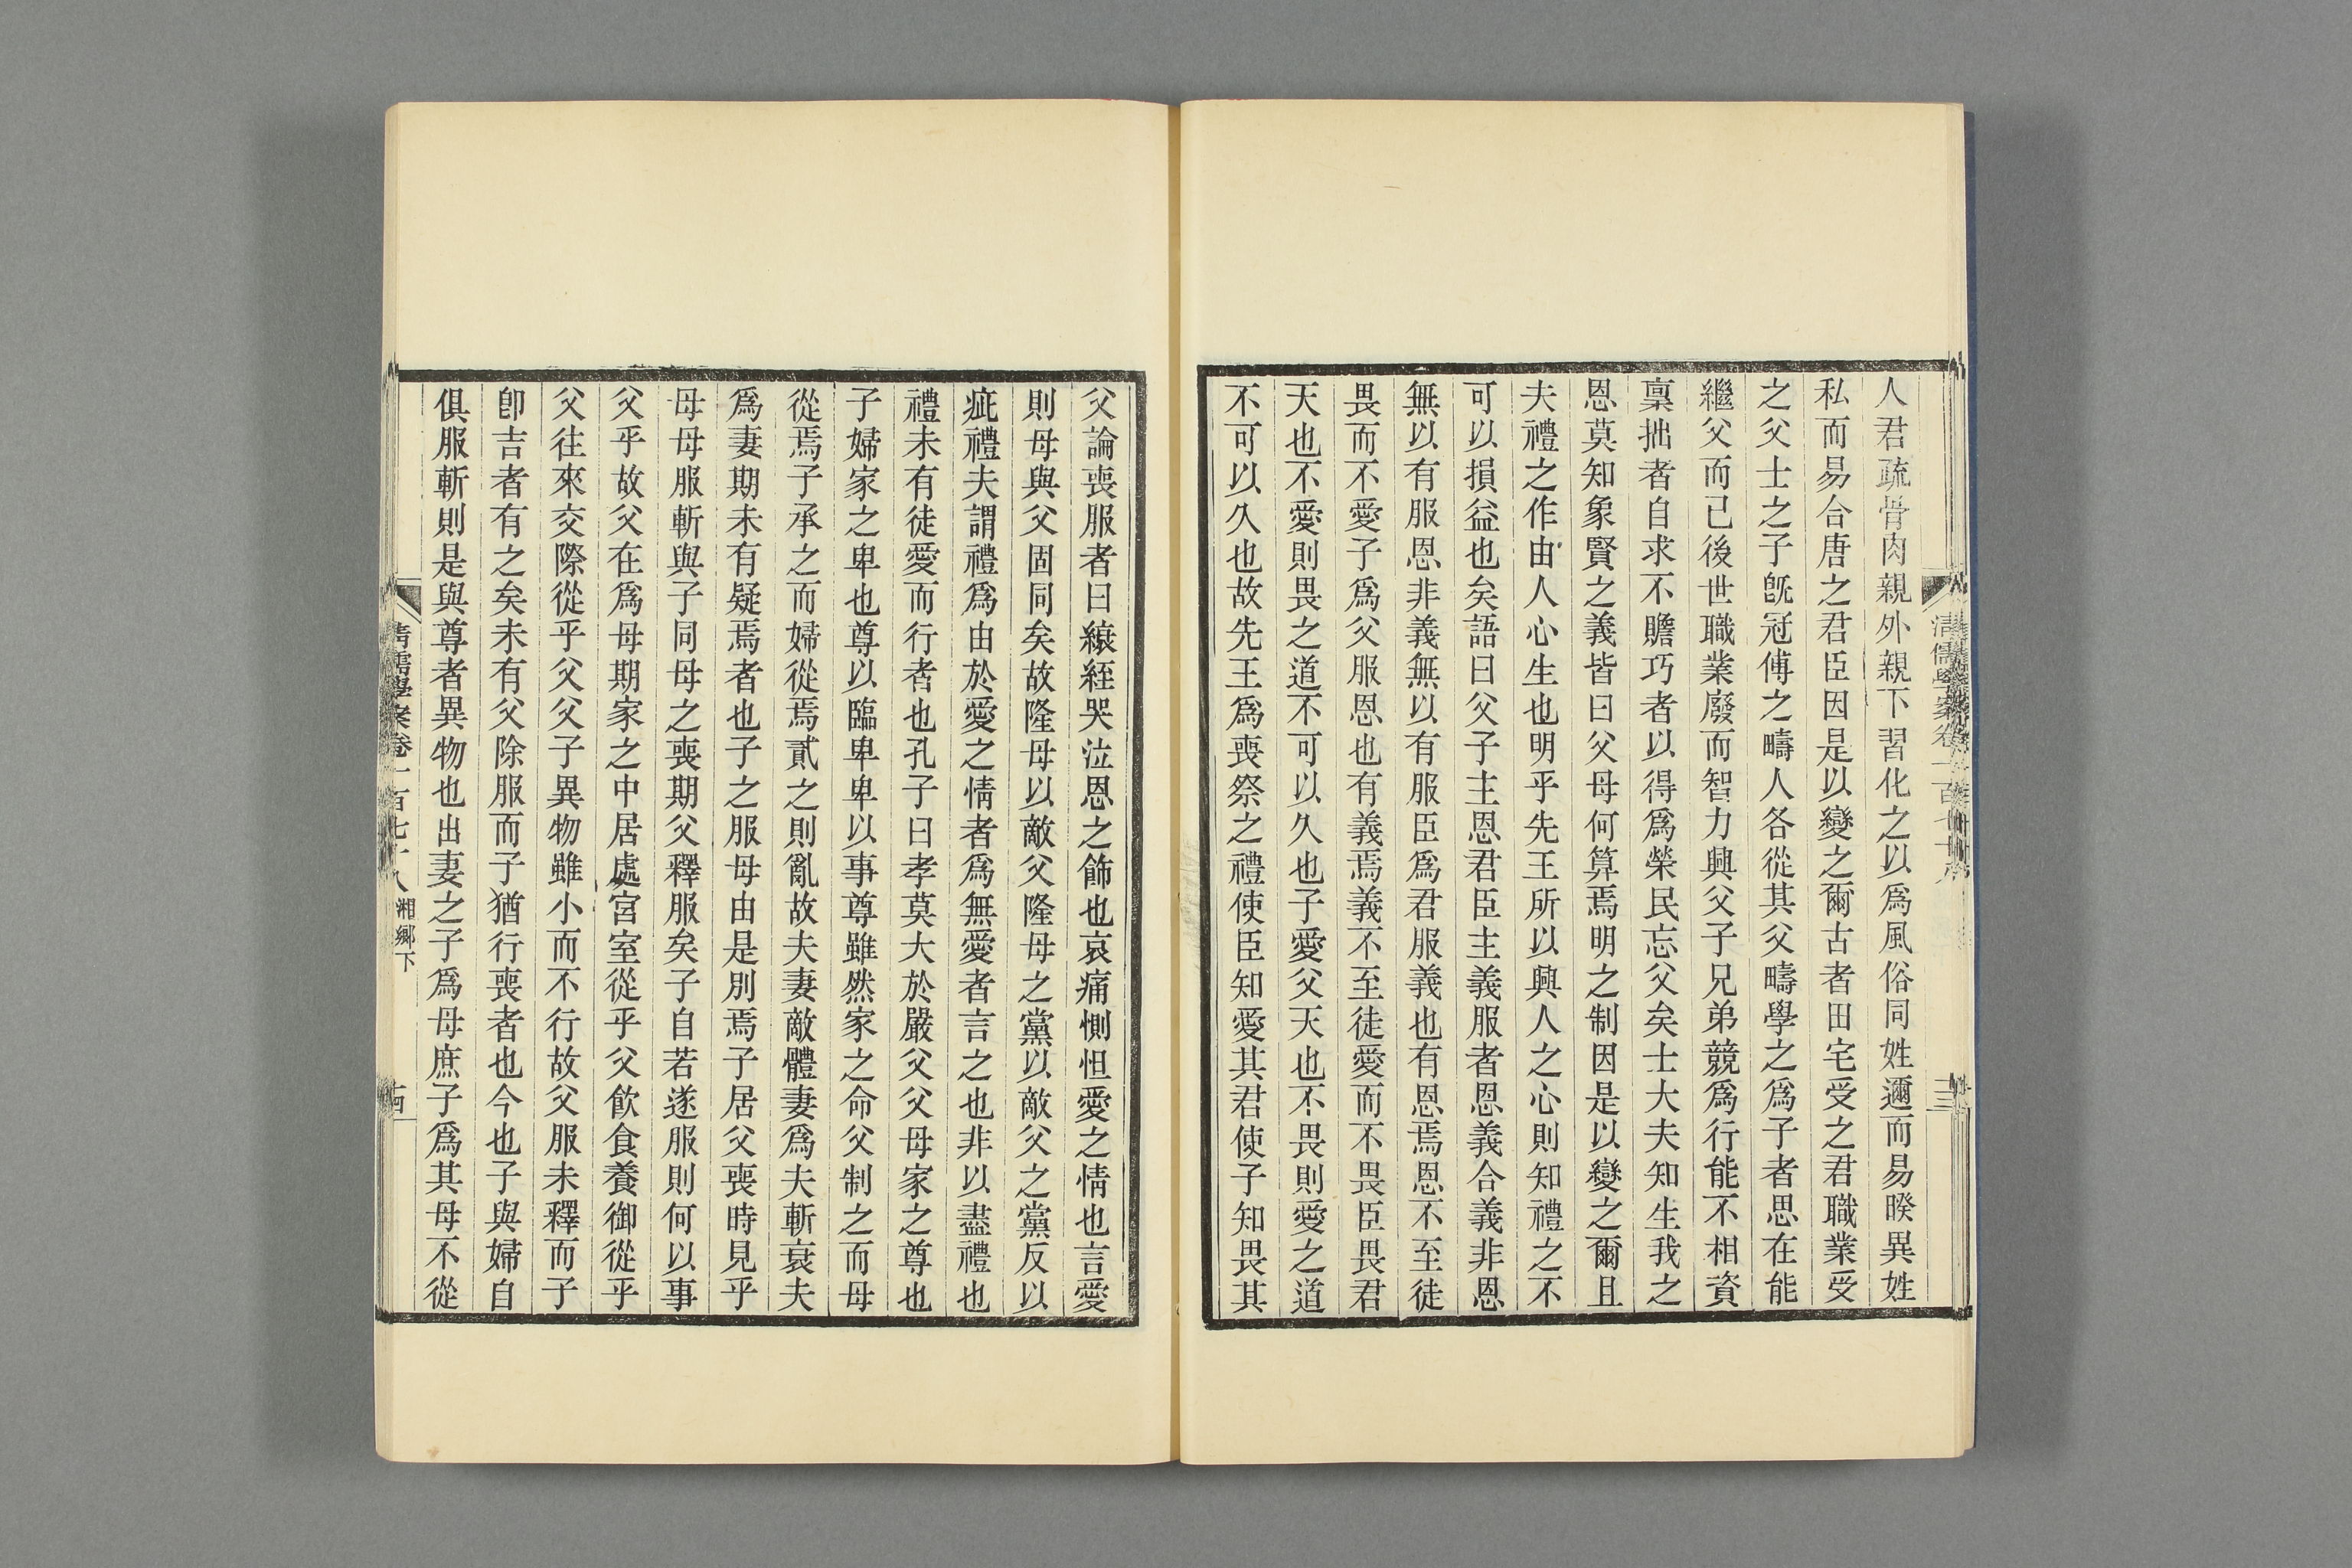 人君疏骨肉親外親下習化之以爲風俗同姓邇而易暌異姓
私而易合唐之君臣因是以變之爾古者田宅受之君職業受
之父士之子旣冠傅之疇人各從其父疇學之爲子者思在能
繼父而己後世職業廢而智力興父子兄弟競爲行能不相資
稟拙者自求不贍巧者以得爲榮民忘父矣士大夫知生我之
恩莫知象賢之義皆曰父母何算焉明之制因是以變之爾且
夫禮之作由人心生也明乎先王所以興人之心則知禮之不
可以損益也矣語曰父子主恩君臣主義服者恩義合義非恩
無以有服恩非義無以有服臣爲君服義也有恩焉恩不至徒
畏而不愛子爲父服恩也有義焉義不至徒愛而不畏臣畏君
天也不愛則畏之道不可以久也子愛父天也不畏則愛之道
不可以久也故先王爲喪祭之禮使臣知愛其君使子知畏其
父論喪服者曰縗絰哭泣恩之飾也哀痛惻怛愛之情也言愛
則母與父固同矣故隆母以敵父隆母之黨以敵父之黨反以
疵禮夫謂禮爲由於愛之情者爲無愛者言之也非以盡禮也
禮未有徒愛而行者也孔子曰孝莫大於嚴父父母家之尊也
子婦家之卑也尊以臨卑卑以事尊雖然家之命父制之而母
從焉子承之而婦從焉貳之則亂故夫妻敵體妻爲夫斬衰夫
爲妻期未有疑焉者也子之服母由是別焉子居父喪時見乎
母母服斬與子同母之喪期父釋服矣子自若遂服則何以事
父乎故父在爲母期家之中居處宮室從乎父飮食養御從乎
父往來交際從乎父父子異物雖小而不行故父服未釋而子
卽吉者有之矣未有父除服而子猶行喪者也今也子與婦自
俱服斬則是與尊者異物也出妻之子爲母庶子爲其母不從
清儒學案卷一百七十八 湘鄉下
十四